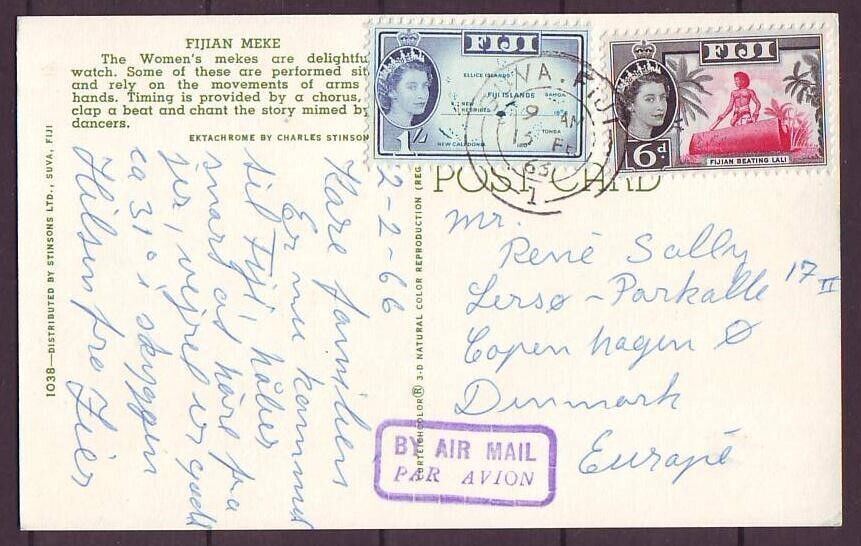 FIJIAN MEKE
The Women's mekes are delightfu
watch. Some of these are performed sit
and rely on the movements of arms
hands. Timing is provided by a chorus,
clap a beat and chant the story mimed by
dancers.
EKTACHROME BY CHARLES STINSON
1038—DISTRIBUTED BY STINSONS LTD., SUVA, FIJI
2-2-66
Kære familien
Er nu kommet
til Fiji, håber
snart at høre fra
jer, vejret er godt
ca 31° i skyggen
Hilsen fra
REPRODUCTION (REG
3-D NATURAL COLOR
POST CARD
FIJI
ELLICE ISLANDS
FIJI ISLANDS
SAMOA
NEW HEBRIDES
TONGA
NEW CALEDONIA
180°
1/-
FIJI
6d
FIJIAN BEATING LALI
SUVA. FIJI
9 AM
15 FE
1
Mr.
René Sally
Lersø-Parkalle 17 II
Copenhagen Ø
Dinmark
Europe
BY AIR MAIL
PAR AVION